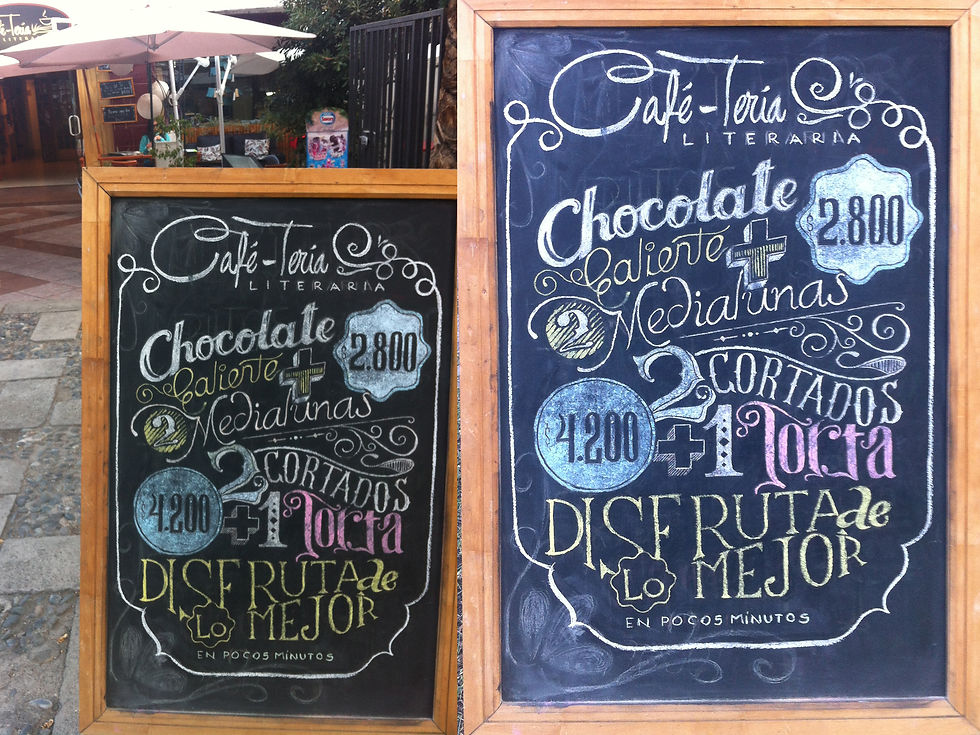 fé-Tería
LITERA
Café-Tería
LITERARIA
Chocolate
Caliente + 2.800
2 Medialunas
2 CORTADOS
4.200 +1 Torta
DISFRUTA de
LO MEJOR
EN POCOS MINUTOS
Café-Tería
LITERARIA
Chocolate
Caliente + 2.800
2 Medialunas
2 CORTADOS
$4.200 +1 Torta
DISFRUTA de
LO MEJOR
EN POCOS MINUTOS